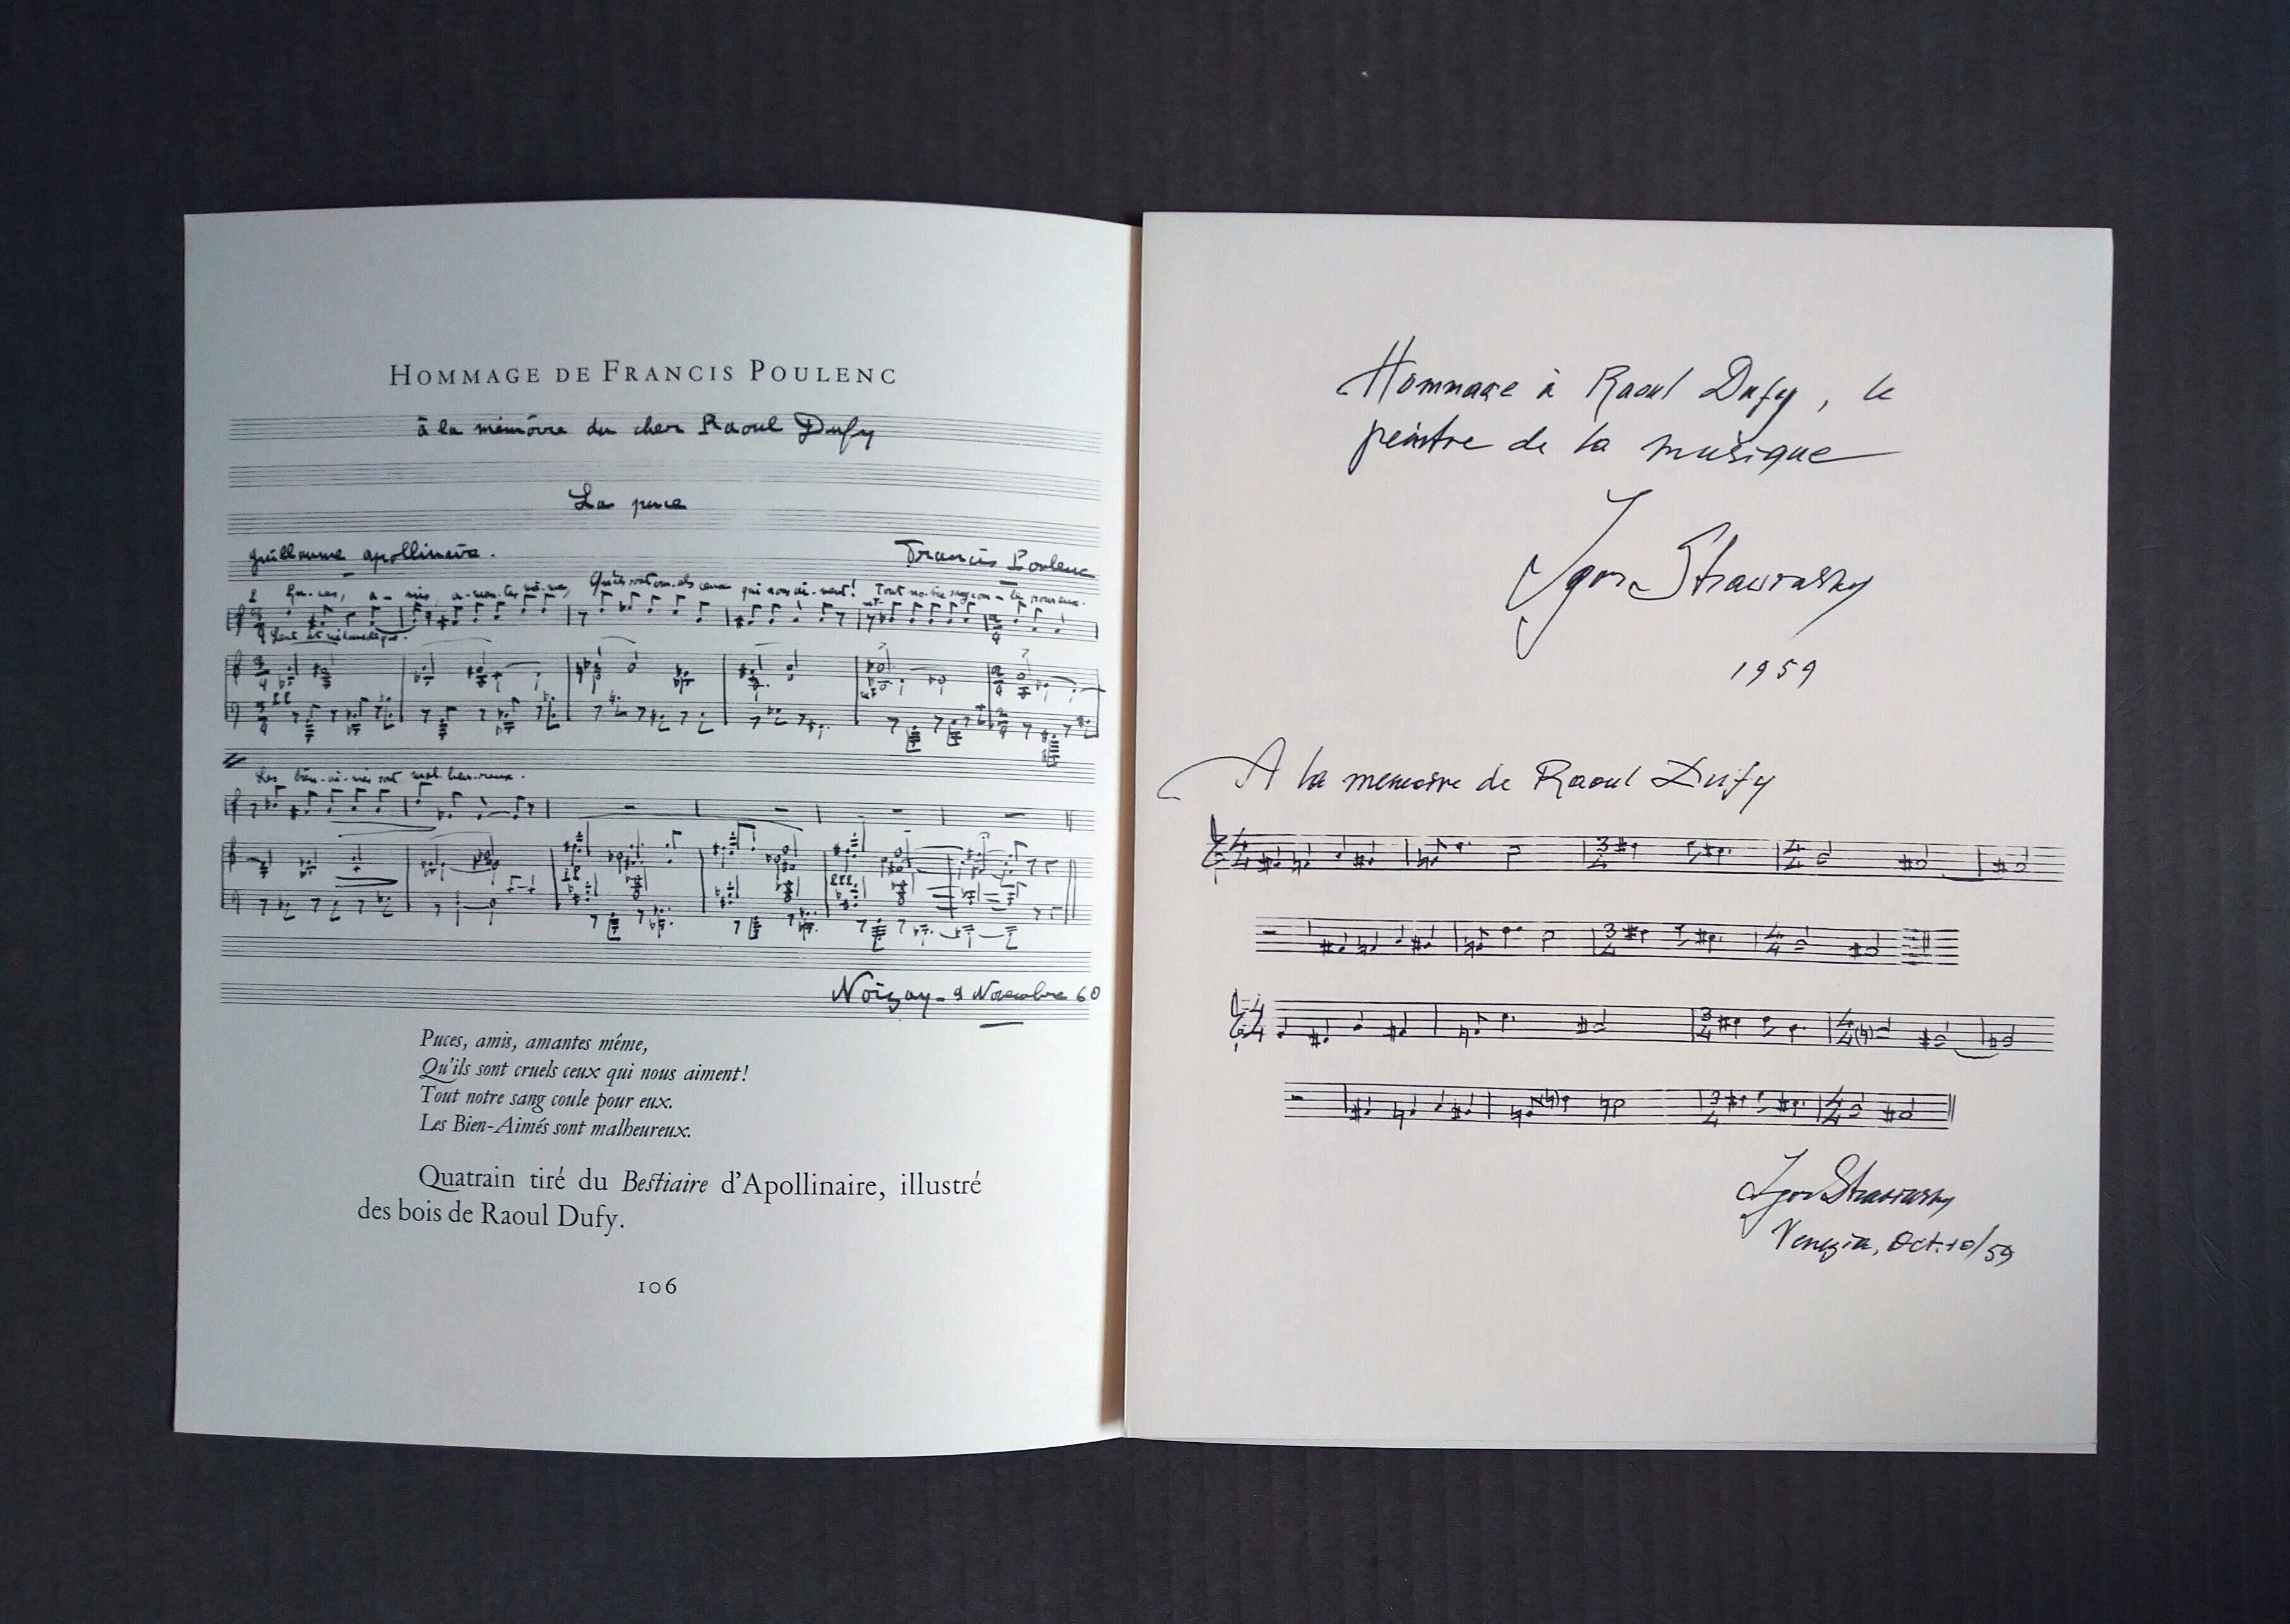 HOMMAGE DE FRANCIS POULENC
à la mémoire du cher Raoul Dufy
La puce
guillaume apollinaire.
Francis Poulenc
Pu-ces, a-mis, a-man-tes mê-me, Qu'ils sont cru-els ceux qui nous ai-ment! Tout no-tre sang cou-le pour eux.
Lent et mélancolique.
Les bien-ai-més sont mal-heu-reux.
Noizay - 9 Novembre 60
Puces, amis, amantes même,
Qu'ils sont cruels ceux qui nous aiment!
Tout notre sang coule pour eux.
Les Bien-Aimés sont malheureux.
Quatrain tiré du Bestiaire d'Apollinaire, illustré
des bois de Raoul Dufy.
106
Hommage à Raoul Dufy, le
peintre de la musique
Igor Strawinsky
1959
A la memoire de Raoul Dufy
Igor Strawinsky
Venezia, Oct. 10/59